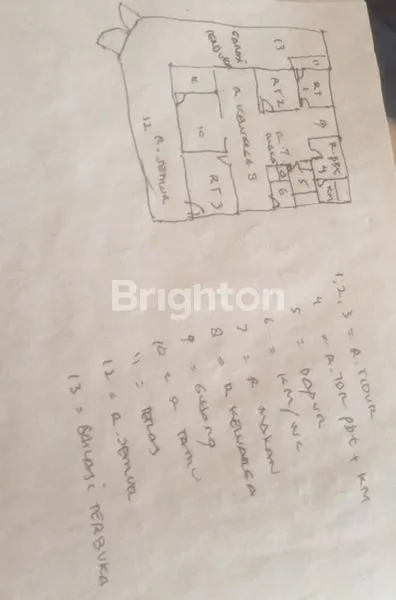 GARASI
TERBUKA
13
11
RT
1
RT 2
9
8
R KELUARGA
10
RT 3
12 R. JEMUR
R. 7
MAKAN
5
6
4
R. PBT
KM
Brighton
1, 2, 3 = R. TIDUR
4 = R. TDR PBT + KM
5 = DAPUR
6 = KM/WC
7 = R MAKAN
8 = R KELUARGA
9 = GUDANG
10 = R TAMU
11 = TERAS
12 = R. JEMUR
13 = GARASI TERBUKA